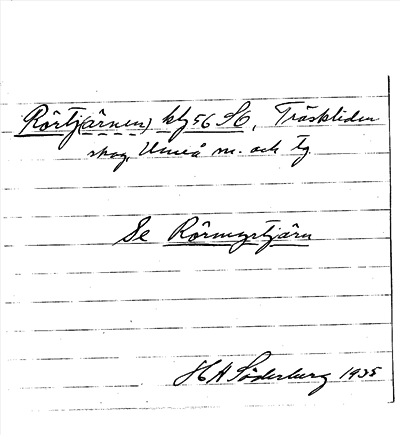 Rörtj(ärnen) kbl 56 S6, Träskliden
skog, Umeå m. och tg.
Se Rörmyrtjärn
H A Söderberg 1935